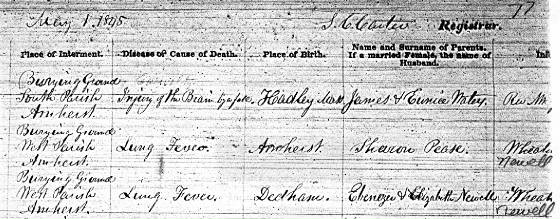 77
May 1, 1845 S. C. Carter Registrar.
Place of Interment. Disease or Cause of Death. Place of Birth. Name and Surname of Parents. If a married Female, the name of Husband.
Burying Ground
South Parish Injury of the Brain by a fall. Hadley Mass James & Eunice
Amherst. Rev Mr
Burying Ground
West Parish Lung Fever. Amherst. Sharon Pease.
Amherst. Newell
Burying Ground
West Parish Lung Fever. Dedham. Ebenezer & Elizabeth Newell
Amherst. Newell